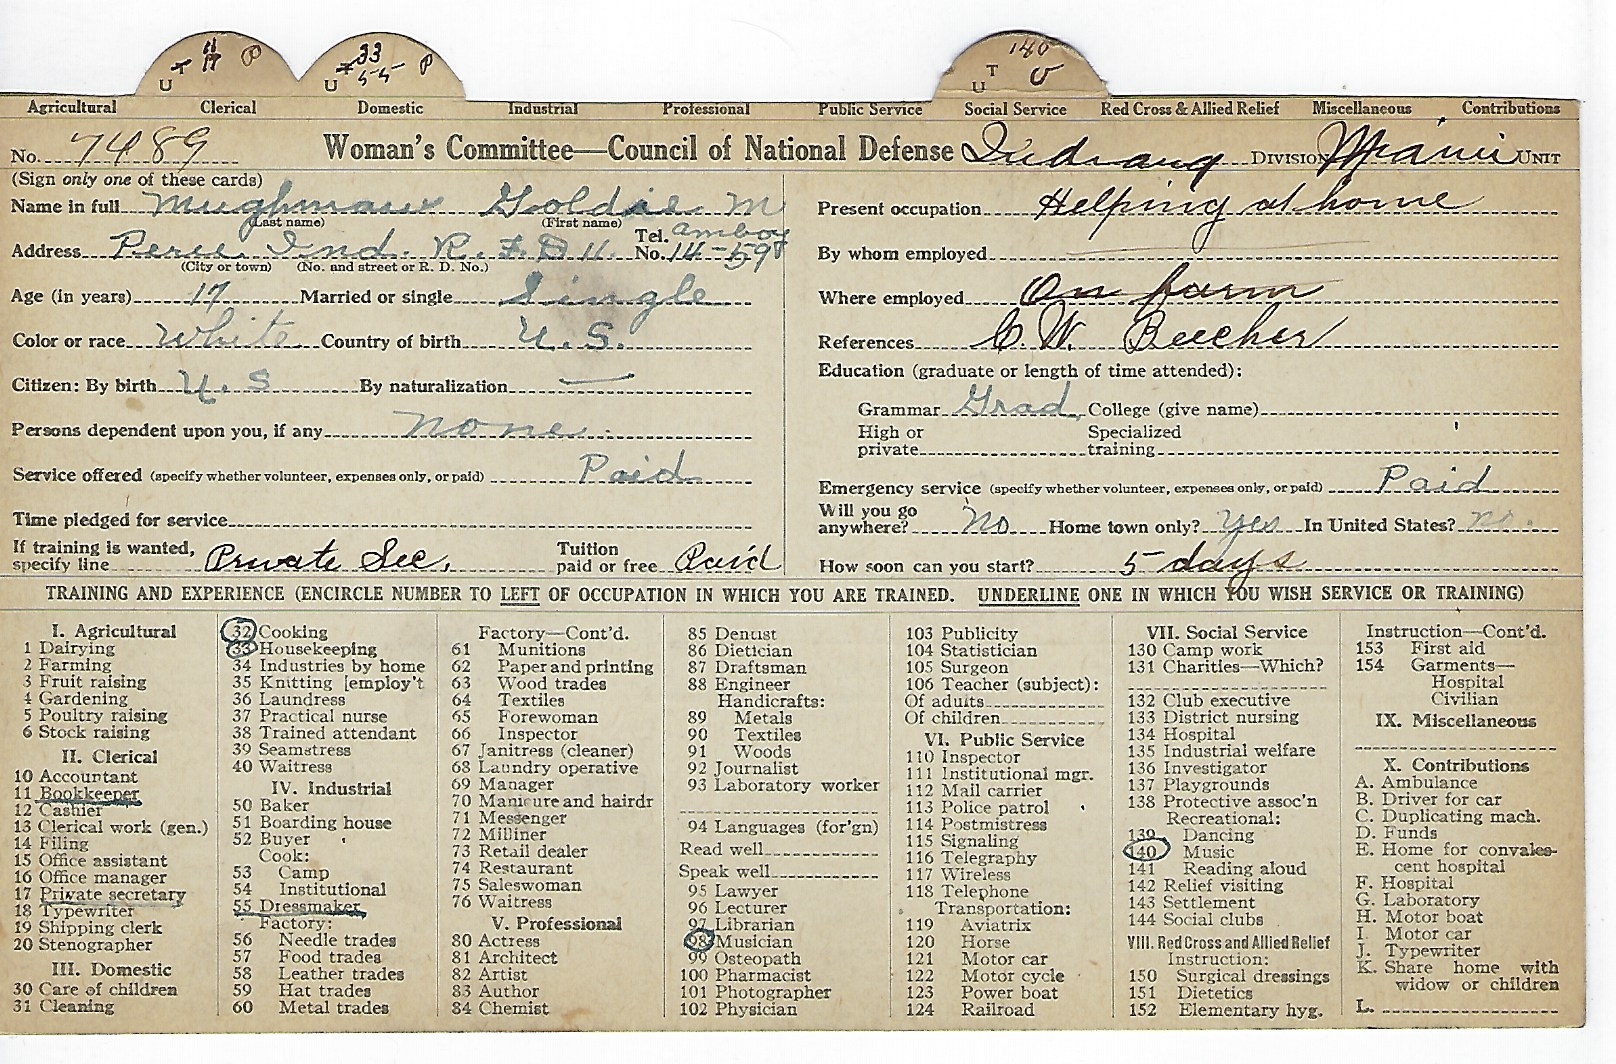 11 17 P
U T
33 55 P
U T
140 V
T U
Agricultural Clerical Domestic Industrial Professional Public Service Social Service Red Cross & Allied Relief Miscellaneous Contributions
No. 7489 Woman's Committee—Council of National Defense Indiana Division Miami Unit
(Sign only one of these cards)
Name in full Mughmaw Goldie M
(Last name) (First name)
Address Peru Ind. R. F. D 11. Tel. No. Amboy 14-598
(City or town) (No. and street or R. D. No.)
Age (in years) 17 Married or single Single
Color or race White Country of birth U.S.
Citizen: By birth U.S By naturalization —
Persons dependent upon you, if any none
Service offered (specify whether volunteer, expenses only, or paid) Paid
Time pledged for service
If training is wanted, specify line Private Sec. Tuition paid or free Paid
Present occupation Helping at home
By whom employed
Where employed On farm
References C. W. Beecher
Education (graduate or length of time attended):
Grammar Grad College (give name)
High or private Specialized training
Emergency service (specify whether volunteer, expenses only, or paid) Paid
Will you go anywhere? No Home town only? Yes In United States? no.
How soon can you start? 5 days
TRAINING AND EXPERIENCE (ENCIRCLE NUMBER TO LEFT OF OCCUPATION IN WHICH YOU ARE TRAINED. UNDERLINE ONE IN WHICH YOU WISH SERVICE OR TRAINING)
I. Agricultural
1 Dairying
2 Farming
3 Fruit raising
4 Gardening
5 Poultry raising
6 Stock raising
II. Clerical
10 Accountant
11 Bookkeeper
12 Cashier
13 Clerical work (gen.)
14 Filing
15 Office assistant
16 Office manager
17 Private secretary
18 Typewriter
19 Shipping clerk
20 Stenographer
III. Domestic
30 Care of children
31 Cleaning
32 Cooking
33 Housekeeping
34 Industries by home
35 Knitting [employ't
36 Laundress
37 Practical nurse
38 Trained attendant
39 Seamstress
40 Waitress
IV. Industrial
50 Baker
51 Boarding house
52 Buyer
Cook:
53 Camp
54 Institutional
55 Dressmaker
Factory:
56 Needle trades
57 Food trades
58 Leather trades
59 Hat trades
60 Metal trades
Factory—Cont'd.
61 Munitions
62 Paper and printing
63 Wood trades
64 Textiles
65 Forewoman
66 Inspector
67 Janitress (cleaner)
68 Laundry operative
69 Manager
70 Manicure and hairdr
71 Messenger
72 Milliner
73 Retail dealer
74 Restaurant
75 Saleswoman
76 Waitress
V. Professional
80 Actress
81 Architect
82 Artist
83 Author
84 Chemist
85 Dentist
86 Dietician
87 Draftsman
88 Engineer
Handicrafts:
89 Metals
90 Textiles
91 Woods
92 Journalist
93 Laboratory worker
94 Languages (for'gn)
Read well
Speak well
95 Lawyer
96 Lecturer
97 Librarian
98 Musician
99 Osteopath
100 Pharmacist
101 Photographer
102 Physician
103 Publicity
104 Statistician
105 Surgeon
106 Teacher (subject):
Of adults
Of children
VI. Public Service
110 Inspector
111 Institutional mgr.
112 Mail carrier
113 Police patrol
114 Postmistress
115 Signaling
116 Telegraphy
117 Wireless
118 Telephone
Transportation:
119 Aviatrix
120 Horse
121 Motor car
122 Motor cycle
123 Power boat
124 Railroad
VII. Social Service
130 Camp work
131 Charities—Which?
132 Club executive
133 District nursing
134 Hospital
135 Industrial welfare
136 Investigator
137 Playgrounds
138 Protective assoc'n
Recreational:
139 Dancing
140 Music
141 Reading aloud
142 Relief visiting
143 Settlement
144 Social clubs
VIII. Red Cross and Allied Relief
Instruction:
150 Surgical dressings
151 Dietetics
152 Elementary hyg.
Instruction—Cont'd.
153 First aid
154 Garments—
Hospital
Civilian
IX. Miscellaneous
X. Contributions
A. Ambulance
B. Driver for car
C. Duplicating mach.
D. Funds
E. Home for convales-
cent hospital
F. Hospital
G. Laboratory
H. Motor boat
I. Motor car
J. Typewriter
K. Share home with
widow or children
L.